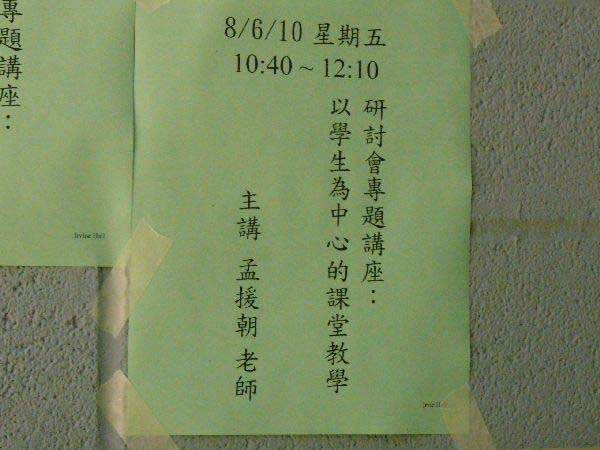 專題講座：
Irvine Hall
8/6/10 星期五
10:40 ~ 12:10
研討會專題講座：
以學生為中心的課堂教學
主講 孟援朝 老師